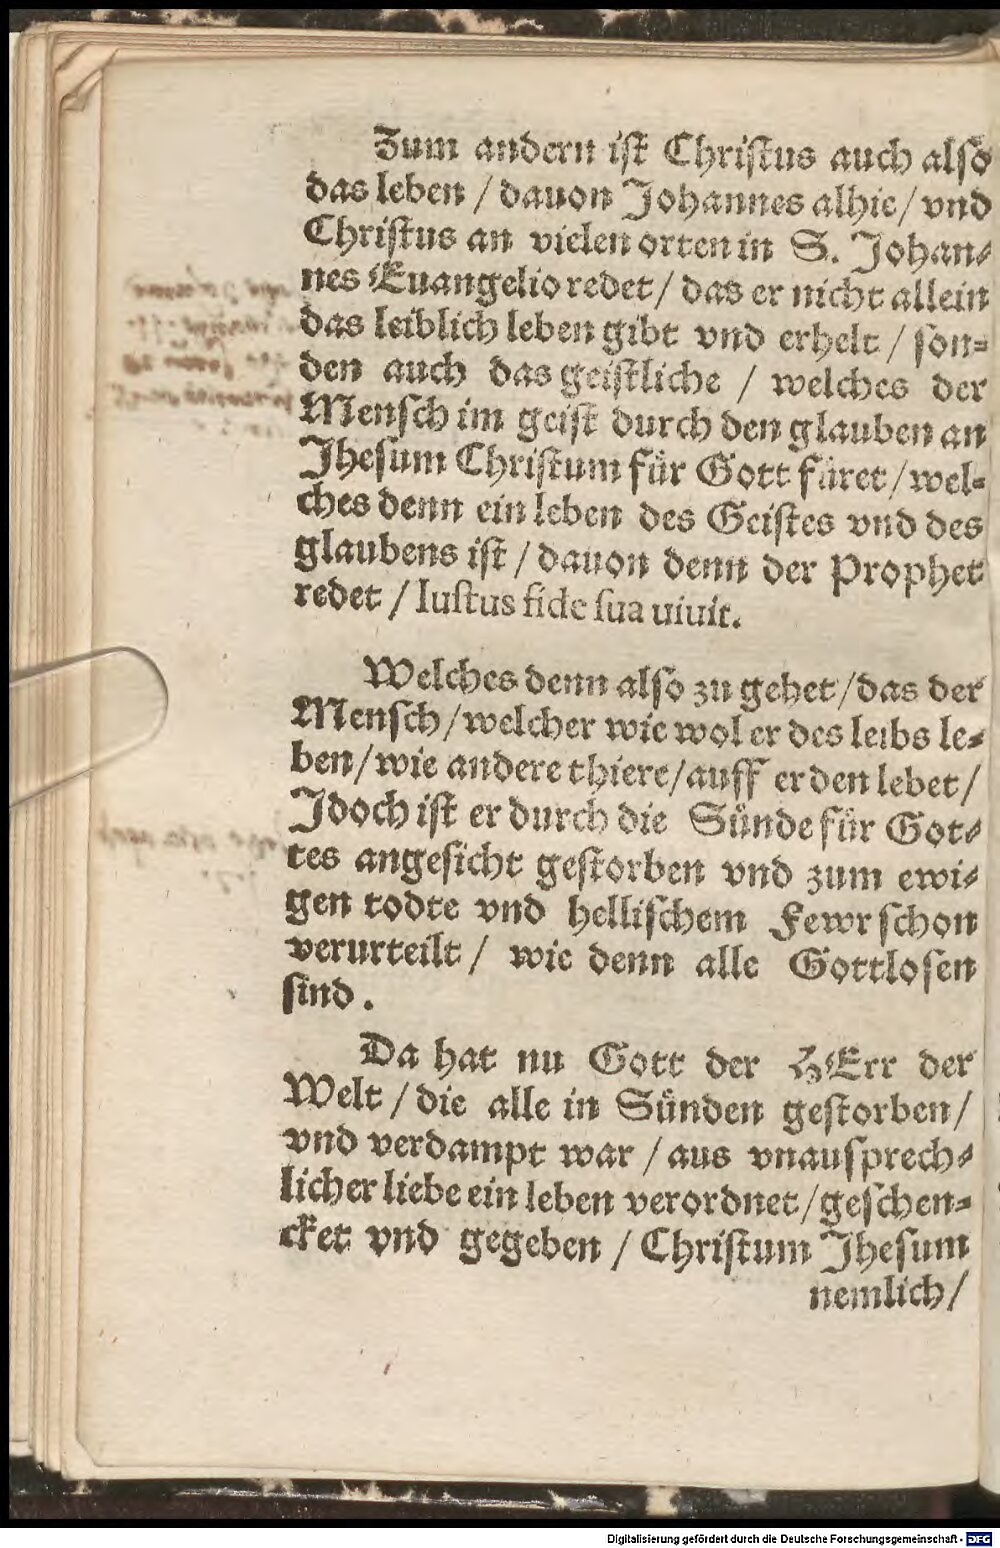 Zum andern iſt Chriſtus auch alſo
das leben / dauon Johannes alhie / vnd
Chriſtus an vielen orten in S. Johan⸗
nes Euangelio redet / das er nicht allein
das leiblich leben gibt vnd erhelt / ſon⸗
den auch das geiſtliche / welches der
Menſch im geiſt durch den glauben an
Jheſum Chriſtum für Gott füret / wel⸗
ches denn ein leben des Geiſtes vnd des
glaubens iſt / dauon denn der Prophet
redet / Iuſtus fide ſua uiuit.
Welches denn alſo zu gehet / das der
Menſch / welcher wie wol er des leibs le⸗
ben / wie andere thiere / auff erden lebet /
Jdoch iſt er durch die Sünde für Got⸗
tes angeſicht geſtorben vnd zum ewi⸗
gen todte vnd helliſchem Fewr ſchon
verurteilt / wie denn alle Gottloſen
ſind.
Da hat nu Gott der HErr der
Welt / die alle in Sünden geſtorben /
vnd verdampt war / aus vnausſprech⸗
licher liebe ein leben verordnet / geſchen⸗
cket vnd gegeben / Chriſtum Jheſum
nemlich /
Digitalisierung gefördert durch die Deutsche Forschungsgemeinschaft - DFG